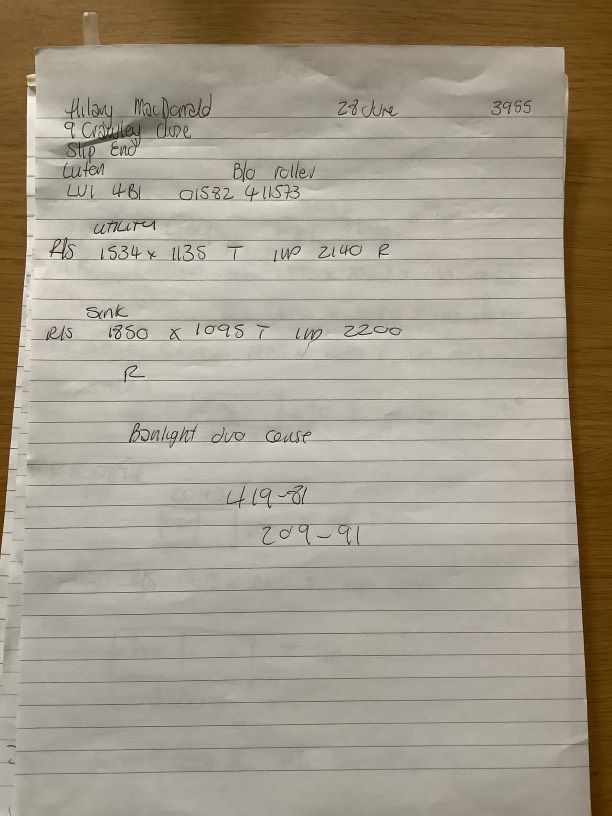 Hilary MacDonald 28 June 3955
9 Crawley Close
Slip End
Luton B/o roller
LU1 4B1 01582 411573
utility
R/S 1534 x 1135 T up 2140 R
Sink
R/S 1850 x 1095 T up 2200
R
Banlight duo
419-81
209-91